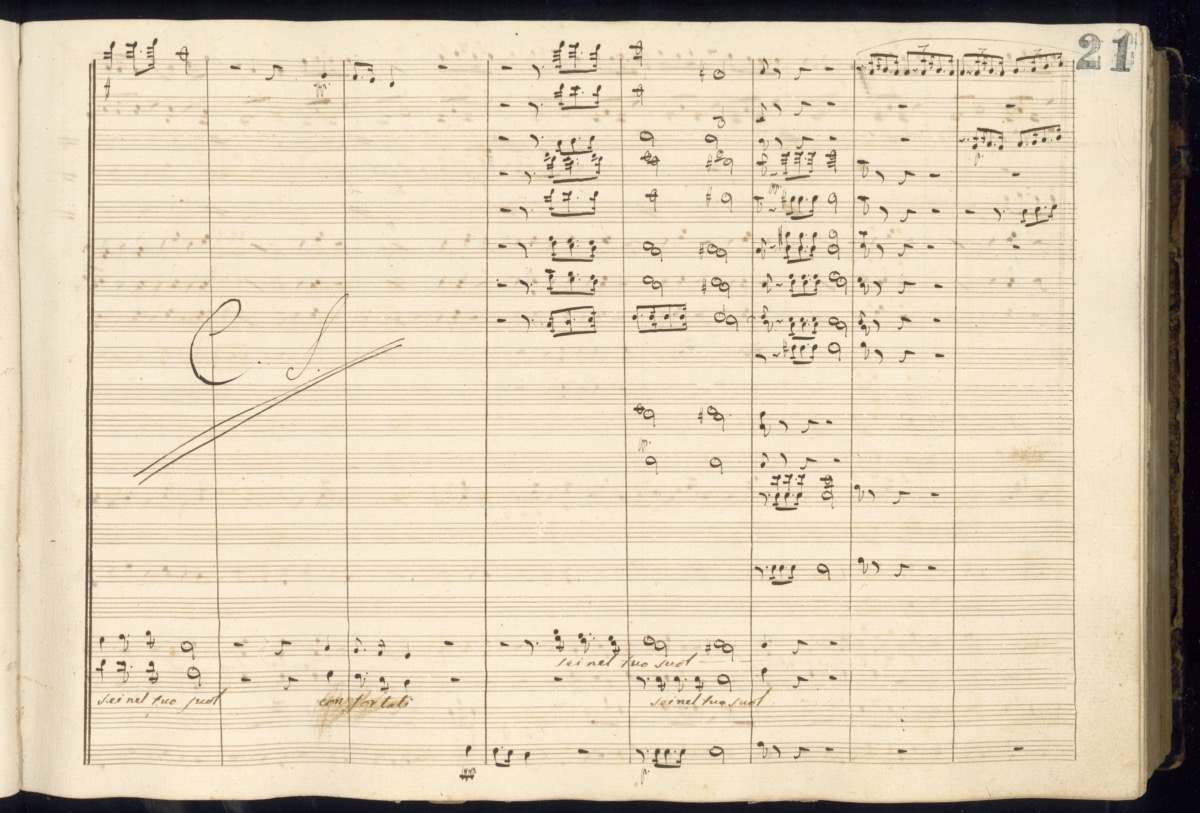 21
C. S.
sei nel tuo suol
sei nel tuo suol
confortati
sei nel tuo suol